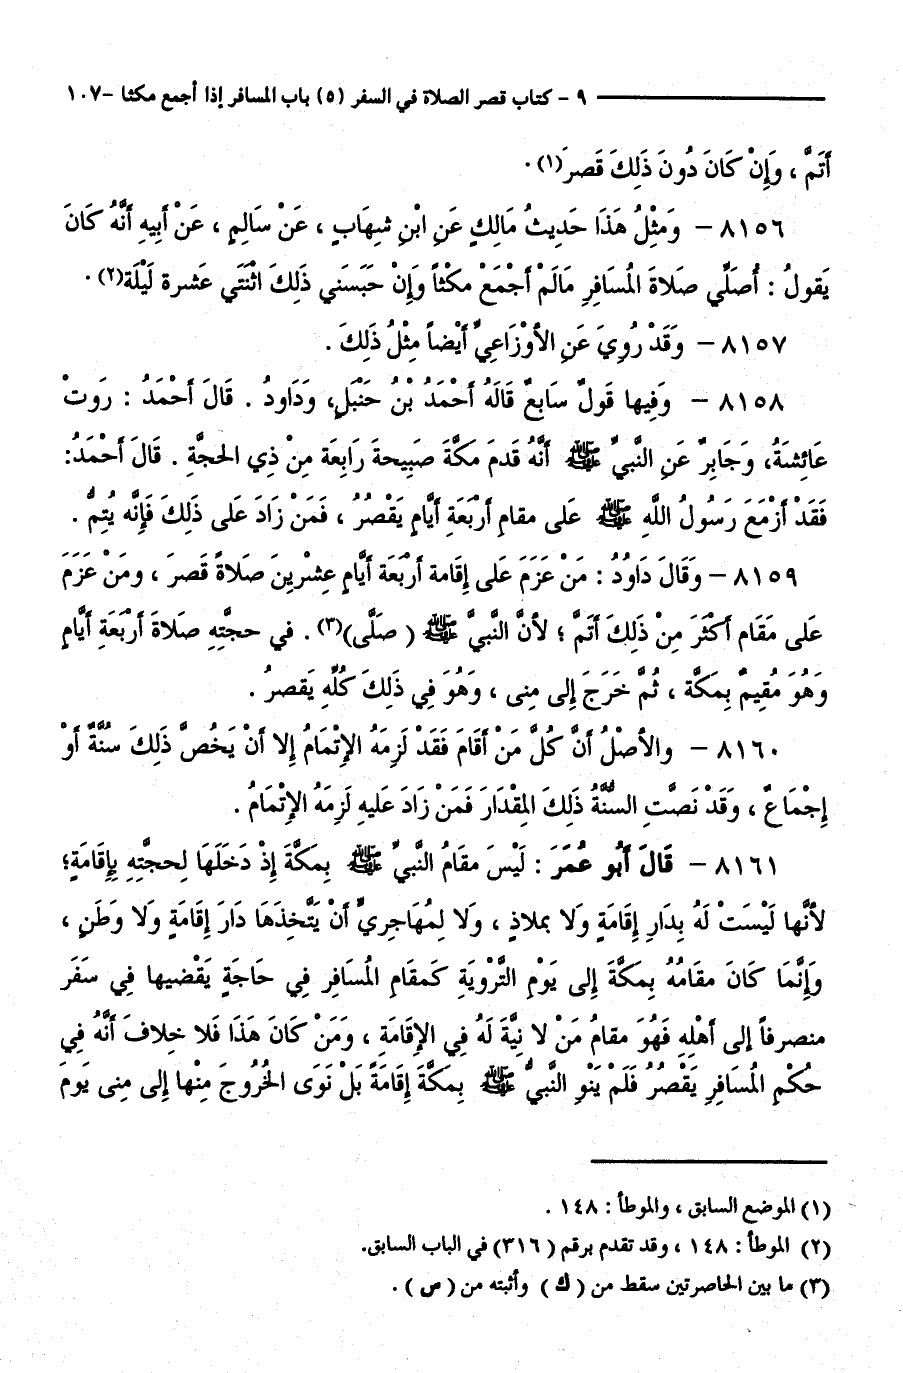 ٩ - كتاب قصر الصلاة في السفر (٥) باب المسافر إذا أجمع مكثا -١٠٧
أَتَمَّ ، وَإِنْ كَانَ دُونَ ذَلِكَ قَصرَ(١) .
٨١٥٦ - وَمَثْلُ هَذَا حَدِيثُ مَالِكٍ عَنِ ابْنِ شِهَابٍ ، عَنْ سَالِمٍ ، عَنْ أَبِيهِ أَنَّهُ كَانَ
يَقولُ : أُصَلِّي صَلاةَ المُسَافِرِ مَالَمْ أَجْمَعْ مكْثاً وَإِنْ حَبَسَني ذَلِكَ اثْنَتَي عَشرة لَيْلَة(٢) .
٨١٥٧ - وَقَدْ رُوِيَ عَنِ الأَوْزَاعِيِّ أَيْضاً مِثْلُ ذَلِكَ .
٨١٥٨ - وَفِيها قَولٌ سَابِعٌ قَالَهُ أَحْمَدُ بْنُ حَنْبَلٍ، وَدَاودُ . قَالَ أَحْمَدُ : رَوتْ
عَائِشَةُ، وَجَابِرٌ عَنِ النَّبيِّ ﷺ أَنَّهُ قَدمَ مَكَّةَ صَبِيحةَ رَابِعَة مِنْ ذِي الحجَّةِ . قَالَ أَحْمَدُ:
فَقَدْ أَزْمَعَ رَسُولُ اللَّهِ ﷺ عَلى مقامِ أَرْبَعَةِ أَيَّامٍ يَقْصُرُ ، فَمَنْ زَادَ عَلى ذَلِكَ فَإِنَّه يُتِمُّ .
٨١٥٩ - وَقَالَ دَاوُدُ : مَنْ عَزَمَ عَلى إِقَامة أَرْبَعَة أَيَّامٍ عِشْرِينَ صَلاةً قَصرَ ، ومَنْ عَزَمَ
عَلى مَقَامِ أَكْثَرَ مِنْ ذَلِكَ أَتَمَّ ؛ لأنَّ النَّبيَّ ﷺ ( صَلَّى)(٣) . في حجتِّهِ صَلاةَ أَرْبَعَةِ أَيَّامٍ
وَهُوَ مُقِيمٌ بِمَكَّة ، ثُمَّ خَرَجَ إِلى مِنى ، وَهُوَ فِي ذَلِكَ كُلِّهِ يَقصرُ .
٨١٦٠ - والأصْلُ أَنَّ كُلَّ مَنْ أَقَامَ فَقَدْ لَزِمَهُ الإِتْمَامُ إلا أَنْ يَخُصَّ ذَلِكَ سُنَّةٌ أَوْ
إِجْمَاعٌ ، وَقَدْ نَصَّتِ السُّنَّةُ ذَلِكَ المِقْدَارَ فَمَنْ زَادَ عَليهِ لَزِمَهُ الإِتْمَامُ .
٨١٦١ - قَالَ أَبُو عُمَرَ : لَيْسَ مقَامُ النَّبيِّ ﷺ بِمَكَّةَ إِذْ دَخَلَهَا لِحجتِّهِ بِإِقَامَةٍ؛
لأنَّها لَيْسَتْ لَهُ بِدَارِ إِقَامَةٍ وَلا بملاذٍ ، وَلا لِمُهَاجِرِيٍّ أَنْ يَتَّخِذَهَا دَارَ إِقَامَةٍ وَلا وَطَنٍ ،
وَإِنَّمَا كَانَ مقَامُهُ بِمَكَّةَ إِلى يَوْمِ التَّرْوِيَةِ كَمقَامِ المُسَافِرِ فِي حَاجَةٍ يَقْضِيها فِي سَفَر
منصرفاً إِلى أَهْلِهِ فَهُوَ مقامُ مَنْ لا نِيَّةَ لَهُ فِي الإِقَامَةِ ، وَمَنْ كَانَ هَذَا فَلا خِلافَ أَنَّهُ فِي
حُكْمِ المُسَافِرِ يَقْصُرُ فَلَمْ يَنْوِ النَّبيُّ ﷺ بِمَكَّةَ إِقَامَةً بَلْ نَوَى الخُرُوجَ مِنْها إِلى مِنى يَومَ
(١) الموضع السابق ، والموطأ : ١٤٨ .
(٢) الموطأ : ١٤٨ ، وقد تقدم برقم ( ٣١٦) في الباب السابق.
(٣) ما بين الحاصرتين سقط من ( ك ) وأثبته من ( ص ) .